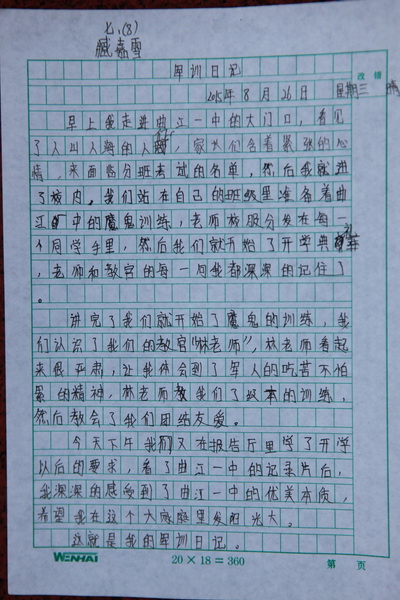 七.(8)
臧嘉雪
军训日记
改错
2015年8月26日 星期三 晴
早上我走进曲江一中的大门口,看见
了人山人海的人群,家长们含着紧张的心
情,来面临分班考试的名单,然后我就进
了校内。我们站在自己的班级里准备着曲
江一中的魔鬼训练,老师校服分发在每一
个同学手里,然后我们就开始了开学典礼
,老师和教官的每一句我都深深的记住了
。
讲完了我们就开始了魔鬼的训练,我
们认识了我们的教官"林老师",林老师看起
来很严肃,让我体会到了军人的吃苦不怕
累的精神,林老师教我们了级本的训练,
然后教会了我们团结友爱。
今天下午我们又在报告厅里学了开学
以后的要求,看了曲江一中的记录片后,
我深深的感受到了曲江一中的优美本质,
希望我在这个大家庭里发阳光大。
这就是我的军训日记。
WENHAI 20×18=360 第 页